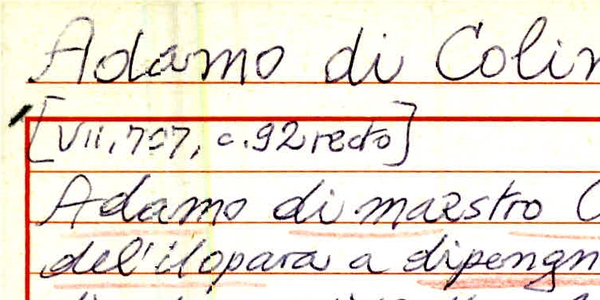 Adamo di Colin
[VII, 707, c. 92 recto]
Adamo di maestro C
del' ilopara a dipengn